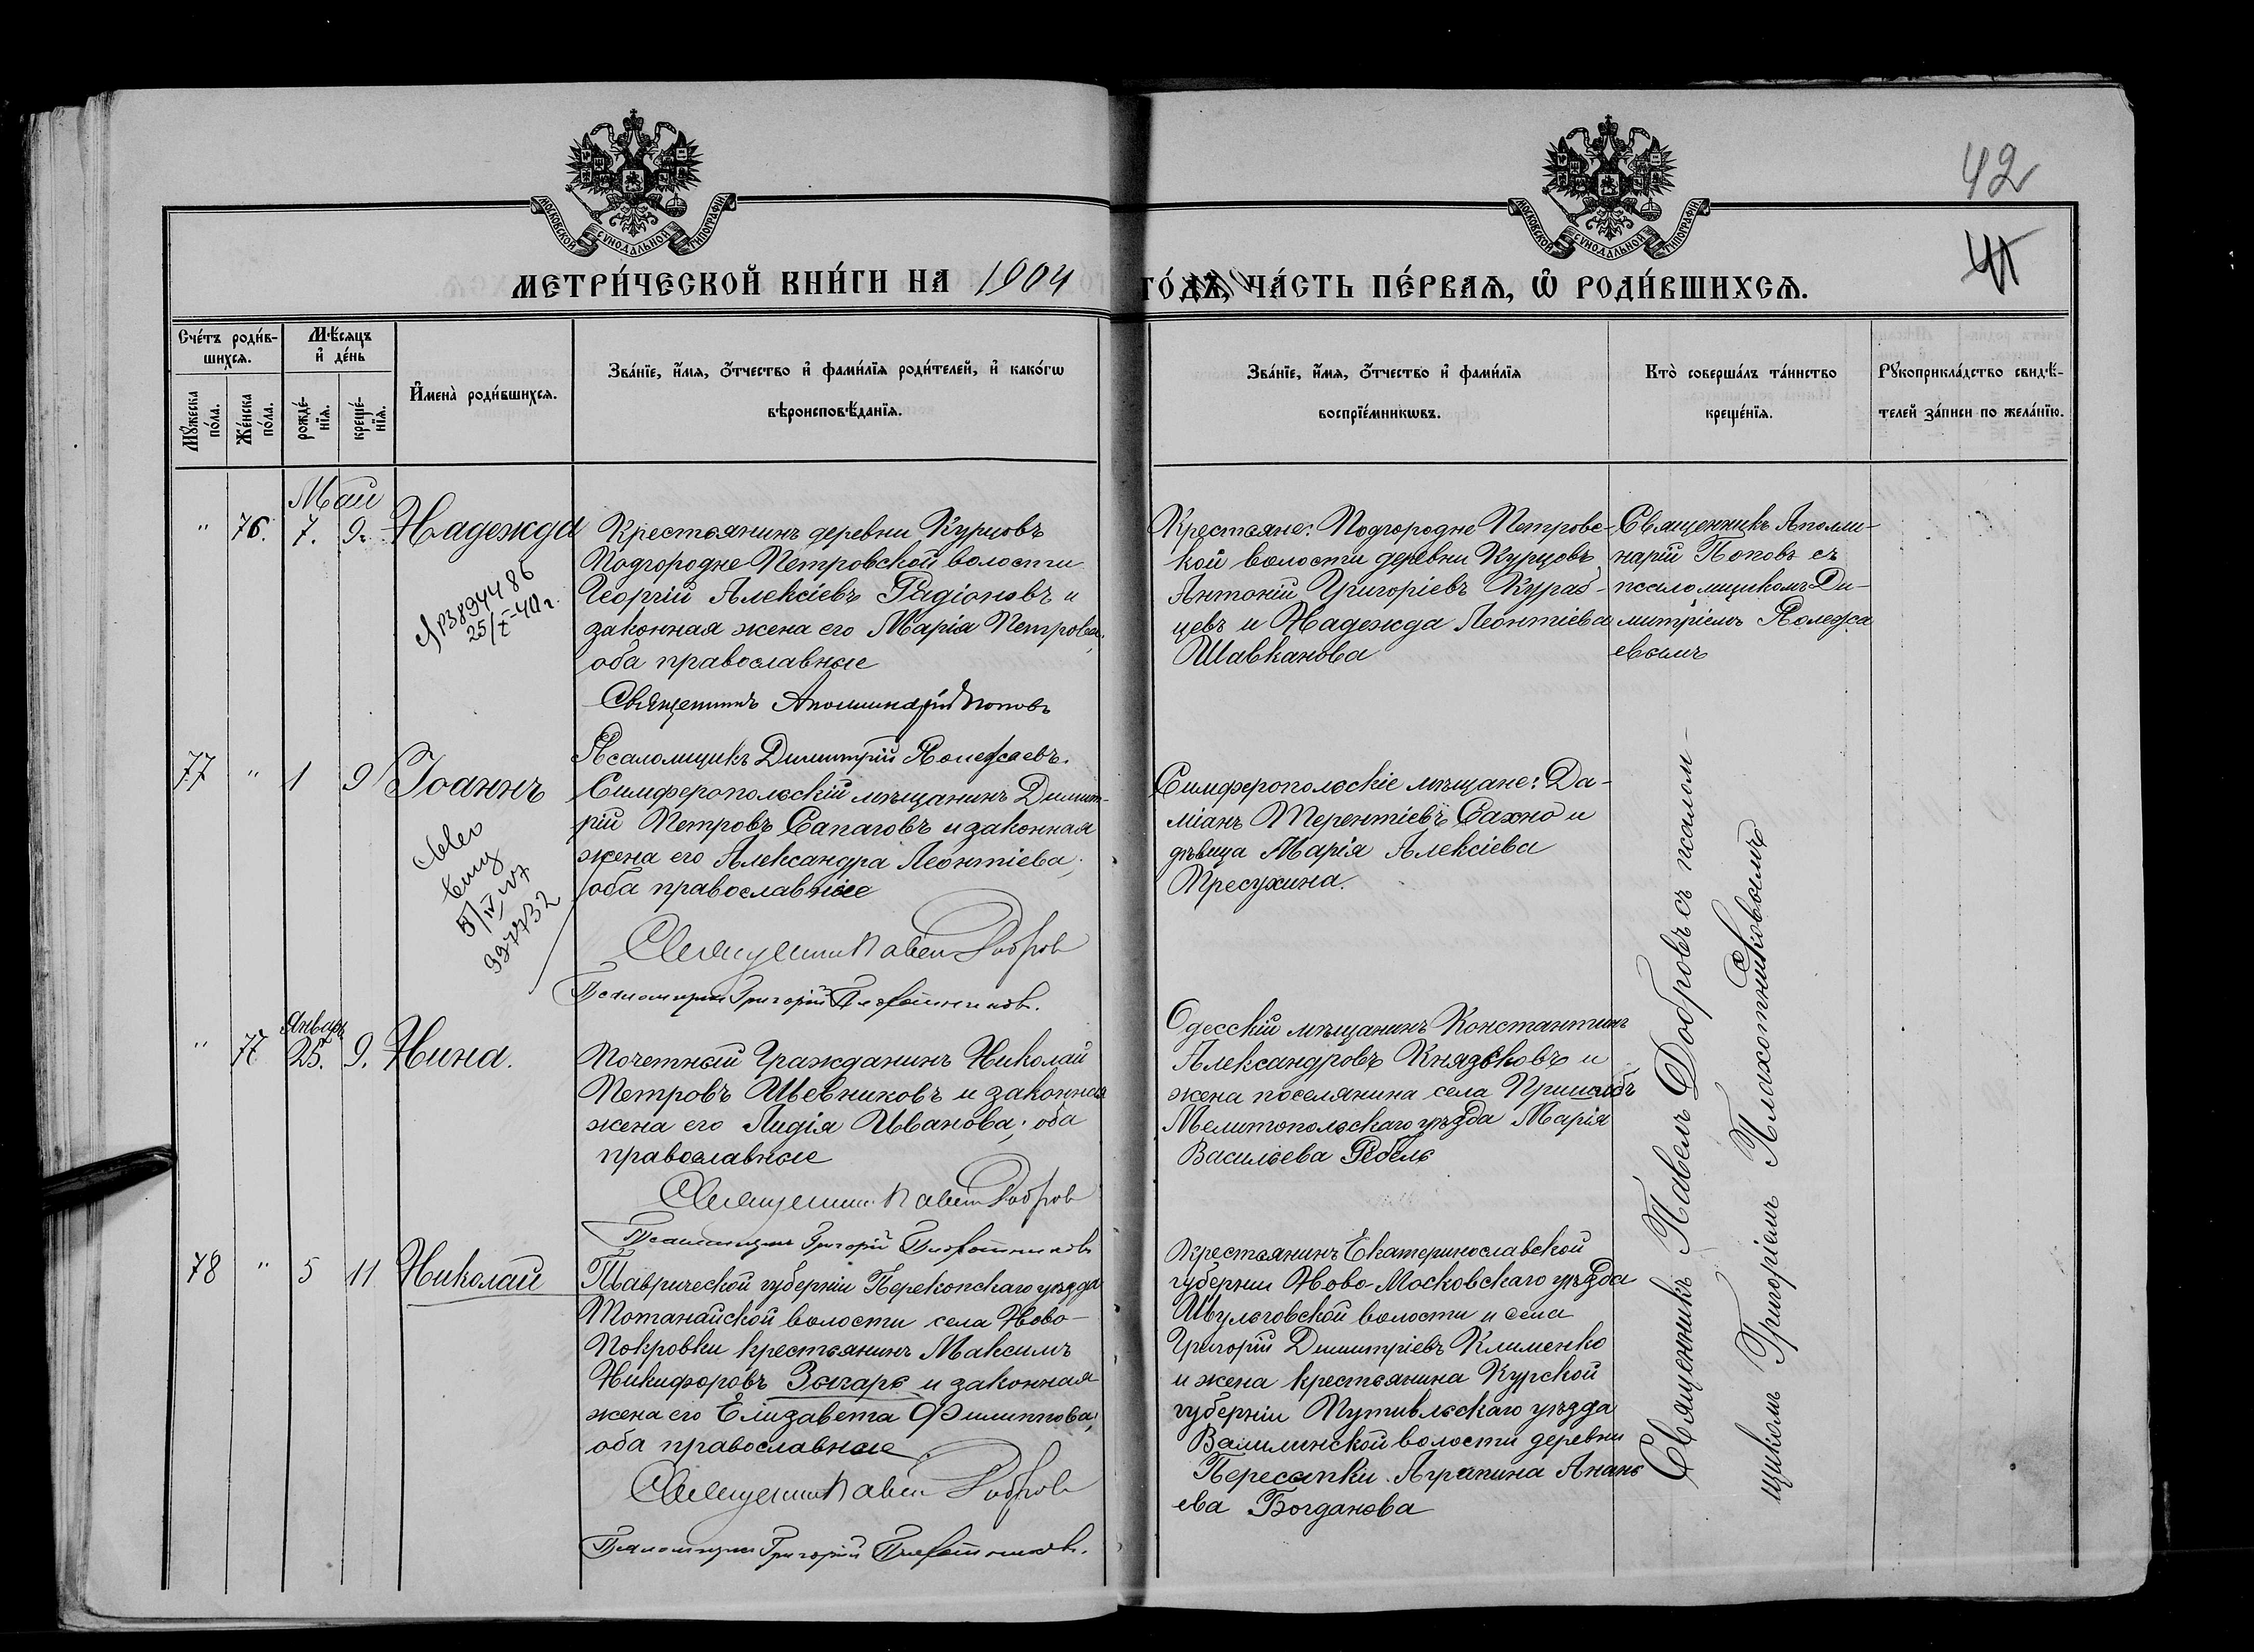 42
41
МОСКОВСКОЙ СѴНОДАЛЬНОЙ ТИПОГРАФІИ
МОСКОВСКОЙ СѴНОДАЛЬНОЙ ТИПОГРАФІИ
МЕТРИ́ЧЕСКОЙ КНИ́ГИ НА 1904 ГО́ДЪ, ЧА́СТЬ ПЕ́РВАѦ, Ѽ РОДИ́ВШИХСѦ.
Сче́тъ роди́в-
шихсѧ.
Мꙋ́жеска по́ла.
Же́нска по́ла.
Мѣ́сѧцъ
и҆ де́нь
рожде́-
нїѧ.
креще́-
нїѧ.
И҆мена̀ роди́вшихсѧ.
Зва́нїе, и҆́мѧ, ѻ҆́тчество и҆ фами́лїѧ роди́телей, и҆ како́гѡ
вѣроисповѣ́данїѧ.
Зва́нїе, и҆́мѧ, ѻ҆́тчество и҆ фами́лїѧ
воспрїе́мникѡвъ.
Кто̀ соверша́лъ та́инство
креще́нїѧ.
Рꙋкоприкла́дство свидѣ́-
телей за́писи по жела́нїю.
Май
" 76. 7. 9. Надежда
ЯР3894486
25/X-40 г.
Крестьянинъ деревни Курцовъ
Подгородне Петровской волости
Георгій Алексіевъ Радіоновъ и
законная жена его Марія Петрова,
оба православные
Священникъ Аполлинарій Поповъ
Псаломщикъ Димитрій Полежаевъ.
Крестьяне: Подгородне Петровс-
кой волости деревни Курцовъ
Антоній Григоріевъ Кураб-
цевъ и Надежда Леонтіева
Шавканова
Священникъ Аполли-
нарій Поповъ съ
псаломщикомъ Ди-
митріемъ Полежа
евымъ
77 " 1 9 Іоаннъ
5/IV
Симферопольскій мѣщанинъ Димит-
рій Петровъ Сапаговъ и законная
жена его Александра Леонтіева,
оба православные
Священникъ Павелъ Добровъ
Псаломщикъ Григорій Плахотниковъ.
Симферопольскіе мѣщане: Да-
міанъ Терентіевъ Сахно и
дѣвица Марія Алексіева
Пресухина.
Январь
" 77 25. 9. Нина.
Почетный Гражданинъ Николай
Петровъ Шевниковъ и законная
жена его Лидія Иванова, оба
православные
Священникъ Павелъ Добровъ
Псаломщикъ Григорій Плахотниковъ
Одесскій мѣщанинъ Константинъ
Александровъ Князьковъ и
жена поселянина села Пришибъ
Мелитопольскаго уѣзда Марія
Васильева Ребель
78 " 5 11 Николай
Таврической губерніи Перекопскаго уѣзда
Тотанайской волости села Ново-
Покровки крестьянинъ Максимъ
Никифоровъ Зогарь и законная
жена его Елизавета Филиппова,
оба православные
Священникъ Павелъ Добровъ
Псаломщикъ Григорій Плахотниковъ.
Крестьянинъ Екатеринославской
губерніи Ново Московскаго уѣзда
Шульговской волости и села
Григорій Димитріевъ Клименко
и жена крестьянина Курской
губерніи Путивльскаго уѣзда
волости деревни
Агрипина Анань
ева Богданова
Священникъ Павелъ Добровъ съ псалом-
щикомъ Григоріемъ Плахотниковымъ